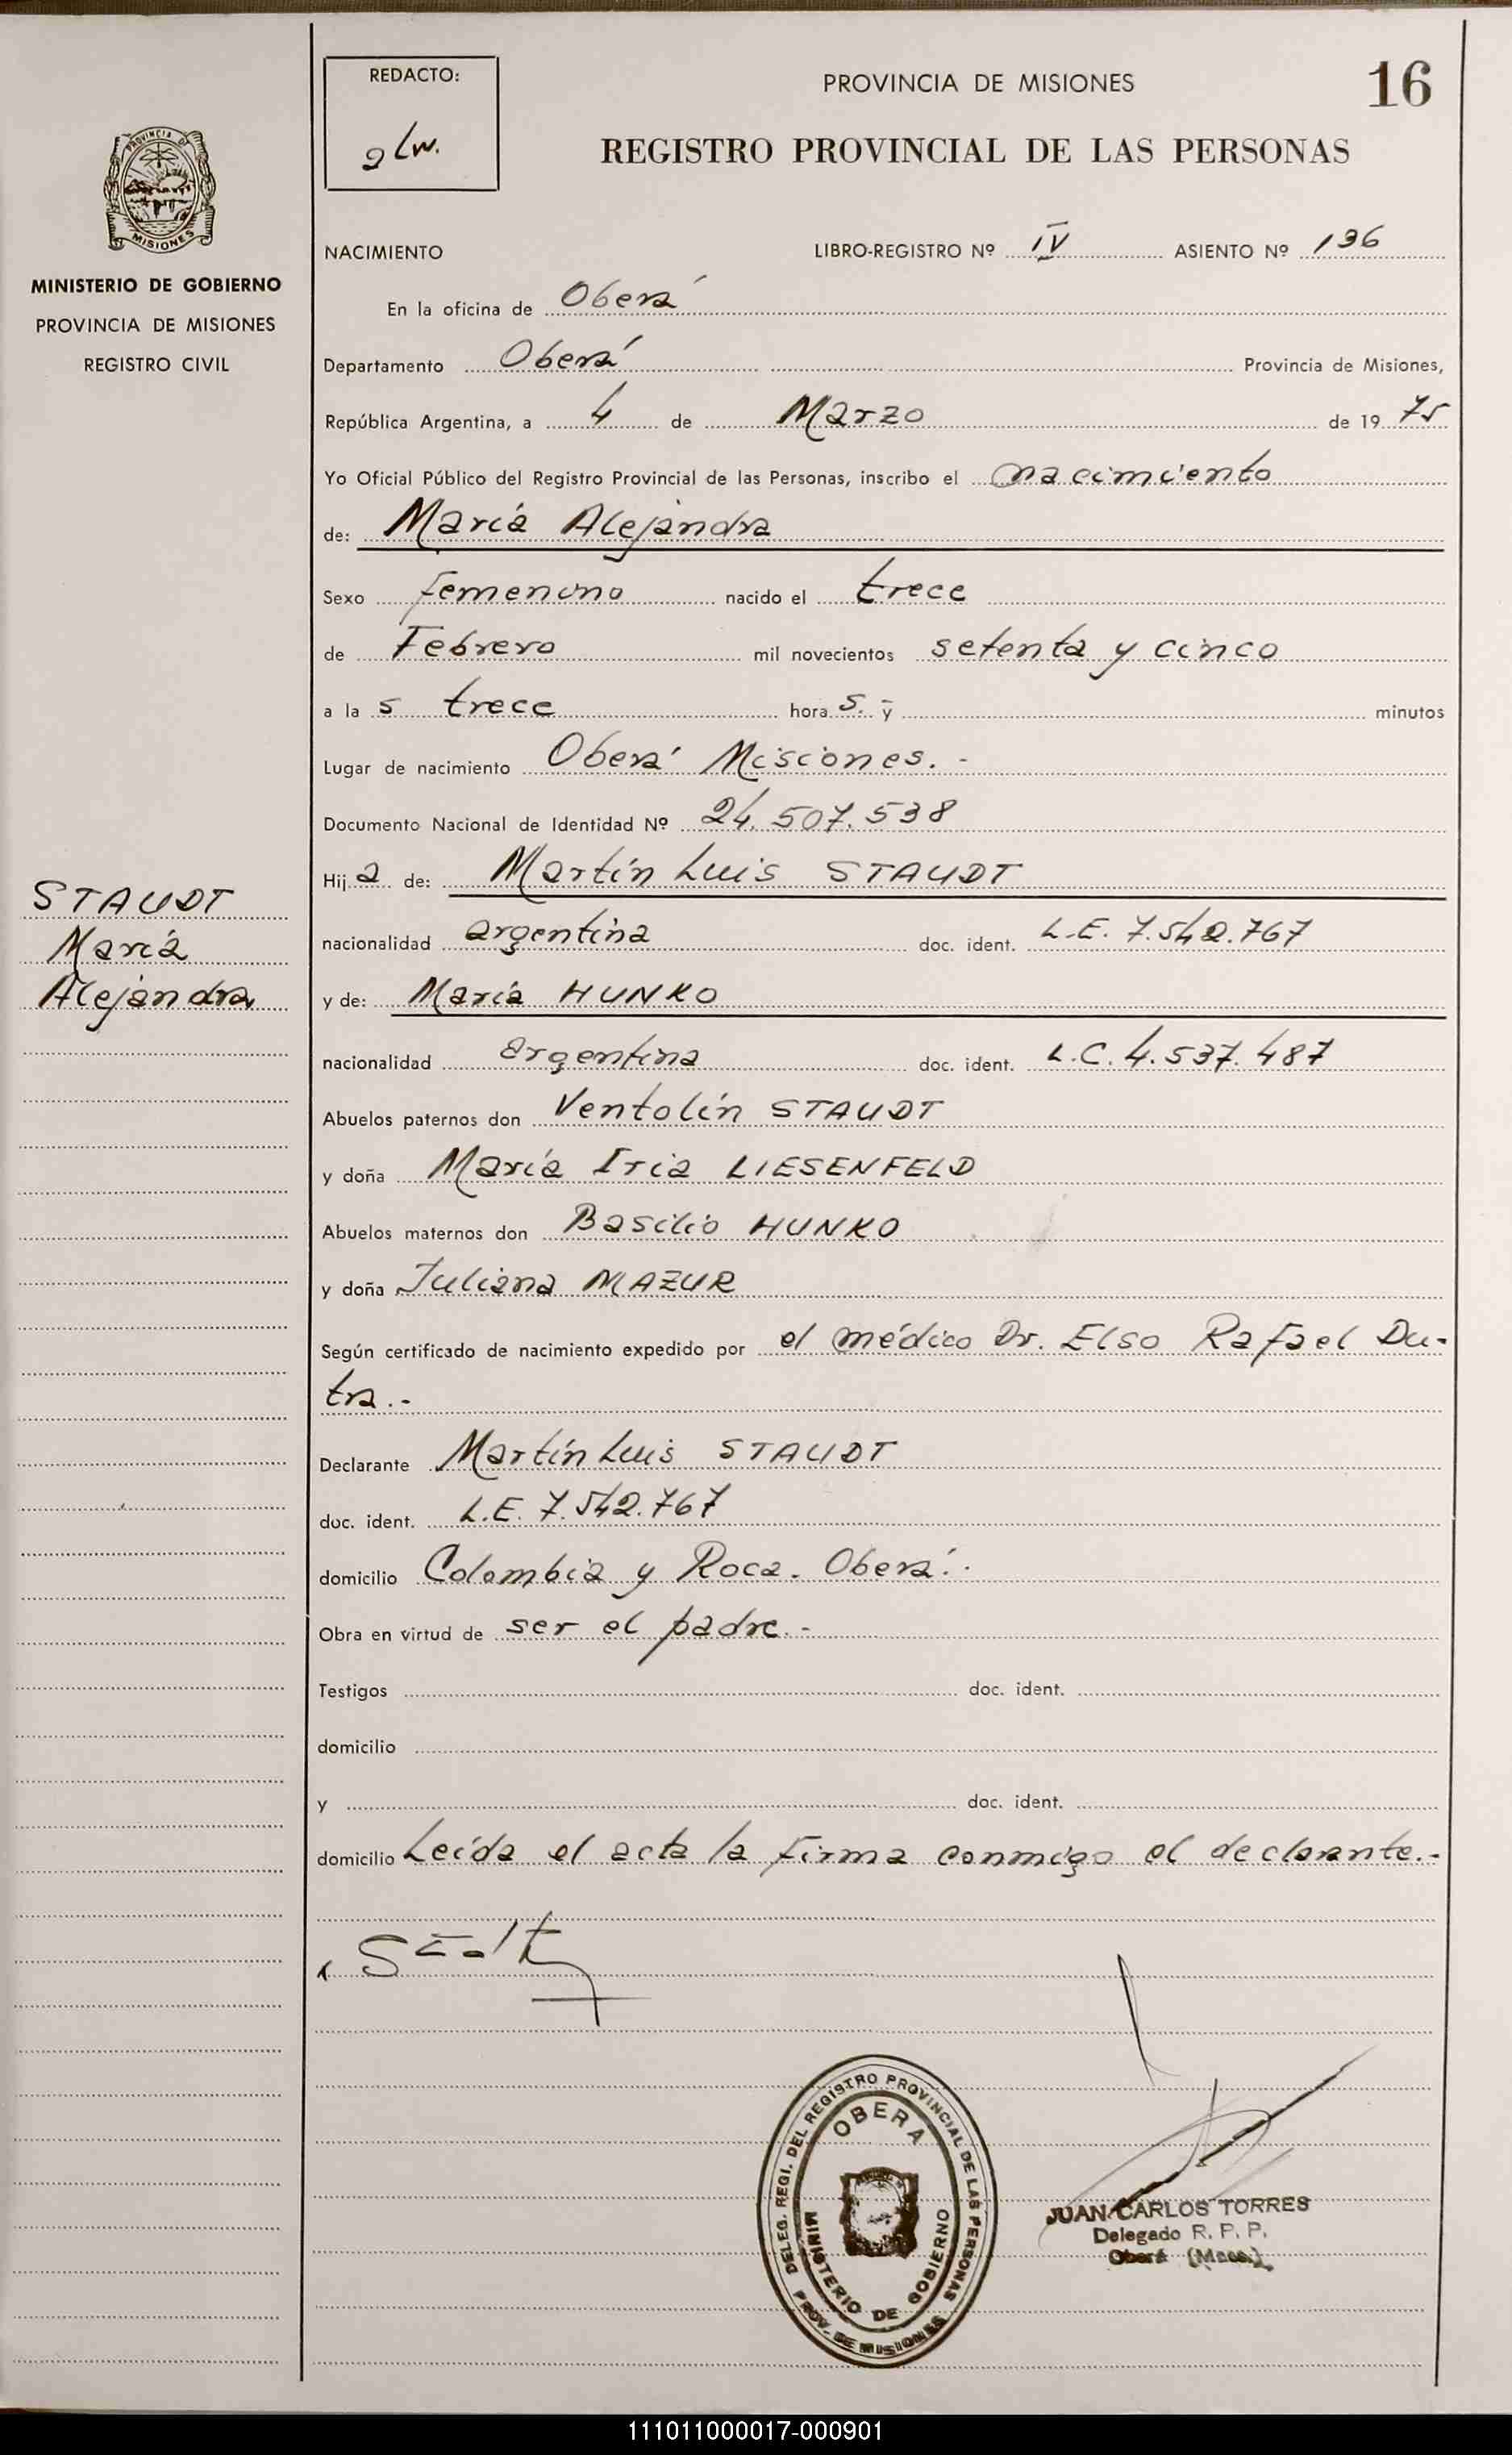 REDACTO:
PROVINCIA DE MISIONES
16
REGISTRO PROVINCIAL DE LAS PERSONAS
PROVINCIA DE
MISIONES
MINISTERIO DE GOBIERNO
PROVINCIA DE MISIONES
REGISTRO CIVIL
NACIMIENTO LIBRO-REGISTRO Nº IV ASIENTO Nº 196
En la oficina de Oberá
Departamento Oberá Provincia de Misiones,
República Argentina, a 4 de Marzo de 1975
Yo Oficial Público del Registro Provincial de las Personas, inscribo el nacimiento
de: María Alejandra
Sexo femenino nacido el trece
de Febrero mil novecientos setenta y cinco
a la s trece hora s. y minutos
Lugar de nacimiento Oberá Misiones.-
Documento Nacional de Identidad Nº 24.507.538
Hija de: Martín Luis STAUDT
STAUDT
María
Alejandra
nacionalidad argentina doc. ident. L.E. 7.542.767
y de: María HUNKO
nacionalidad argentina doc. ident. L.C. 4.537.487
Abuelos paternos don Ventolín STAUDT
y doña María Iria LIESENFELD
Abuelos maternos don Basilio HUNKO
y doña Juliana MAZUR
Según certificado de nacimiento expedido por el médico Dr. Elso Rafael Du-
tra.-
Declarante Martín Luis STAUDT
doc. ident. L.E. 7.542.767
domicilio Colombia y Roca. Oberá.
Obra en virtud de ser el padre.-
Testigos doc. ident.
domicilio
y doc. ident.
domicilio Leída el acta la firma conmigo el declarante.-
DELEG. REGI. DEL REGISTRO PROVINCIAL DE LAS PERSONAS
OBERA
MINISTERIO DE GOBIERNO
PROV. DE MISIONES
JUAN CARLOS TORRES
Delegado R. P. P.
Oberá (Mnes.)
111011000017-000901